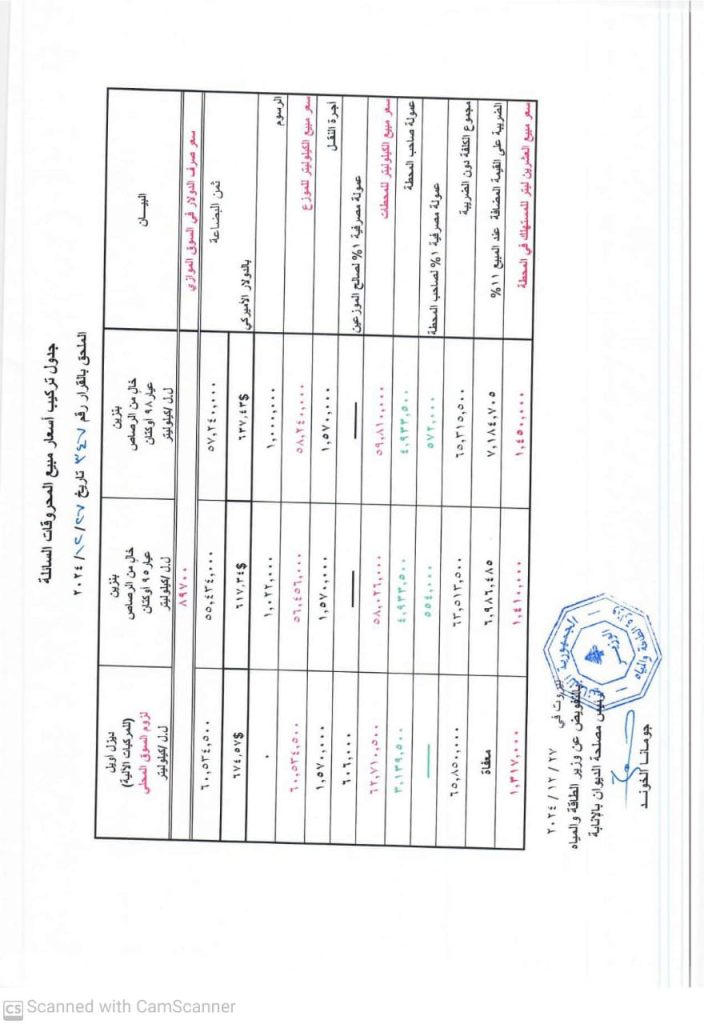 جدول تركيب أسعار مبيع المحروقات السائلة
الملحق بالقرار رقم ٣٤٧ تاريخ ٢٠٢٤/١٢/٢٧
البيـــان
بنزين
خالٍ من الرصاص
عيار ٩٨ أوكتان
ل.ل/كيلوليتر
بنزين
خالٍ من الرصاص
عيار ٩٥ أوكتان
ل.ل/كيلوليتر
ديزل اويل
(للمركبات الآلية)
لزوم السوق المحلي
ل.ل/كيلوليتر
سعر صرف الدولار في السوق الموازي ٨٩٧٠٠
ثمن البضاعة ٥٧,٢٤٠,٠٠٠ ٥٥,٤٣٤,٠٠٠ ٦٠,٥٣٤,٥٠٠
بالدولار الأميركي ٦٣٧,٤٣$ ٦١٧,٣٤$ ٦٧٤,٥٧$
الرسوم ١,٠٠٠,٠٠٠ ١,٠٢٢,٠٠٠ ٠
سعر مبيع الكيلوليتر للموزع ٥٨,٢٤٠,٠٠٠ ٥٦,٤٥٦,٠٠٠ ٦٠,٥٣٤,٥٠٠
أجرة النقل ١,٥٧٠,٠٠٠ ١,٥٧٠,٠٠٠ ١,٥٧٠,٠٠٠
عمولة مصرفية ١% لصالح الموزعين ٦٠٦,٠٠٠
سعر مبيع الكيلوليتر للمحطات ٥٩,٨١٠,٠٠٠ ٥٨,٠٢٦,٠٠٠ ٦٢,٧١٠,٥٠٠
عمولة صاحب المحطة ٤,٩٣٣,٥٠٠ ٤,٩٣٣,٥٠٠ ٣,١٣٩,٥٠٠
عمولة مصرفية ١% لصاحب المحطة ٥٧٢,٠٠٠ ٥٥٤,٠٠٠
مجموع الكلفة دون الضريبة ٦٥,٣١٥,٥٠٠ ٦٣,٥١٣,٥٠٠ ٦٥,٨٥٠,٠٠٠
الضريبة على القيمة المضافة عند المبيع ١١% ٧,١٨٤,٧٠٥ ٦,٩٨٦,٤٨٥ معفاة
سعر مبيع العشرين ليتر للمستهلك في المحطة ١,٤٥٠,٠٠٠ ١,٤١٠,٠٠٠ ١,٣١٧,٠٠٠
بيروت في ٢٠٢٤/١٢/٢٧
بالتفويض عن وزير الطاقة والمياه
رئيس مصلحة الديوان بالإنابة
جومانا الخونـد
الجمهورية
وزارة الطاقة والمياه
الوزير
CS Scanned with CamScanner